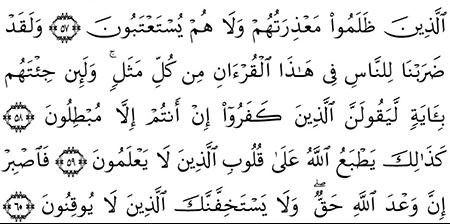 ٱلَّذِينَ ظَلَمُوا۟ مَعْذِرَتُهُمْ وَلَا هُمْ يُسْتَعْتَبُونَ ٥٧ وَلَقَدْ
ضَرَبْنَا لِلنَّاسِ فِى هَـٰذَا ٱلْقُرْءَانِ مِن كُلِّ مَثَلٍ ۚ وَلَئِن جِئْتَهُم
بِـَٔايَةٍ لَّيَقُولَنَّ ٱلَّذِينَ كَفَرُوٓا۟ إِنْ أَنتُمْ إِلَّا مُبْطِلُونَ ٥٨
كَذَٰلِكَ يَطْبَعُ ٱللَّهُ عَلَىٰ قُلُوبِ ٱلَّذِينَ لَا يَعْلَمُونَ ٥٩ فَٱصْبِرْ
إِنَّ وَعْدَ ٱللَّهِ حَقٌّ ۖ وَلَا يَسْتَخِفَّنَّكَ ٱلَّذِينَ لَا يُوقِنُونَ ٦٠